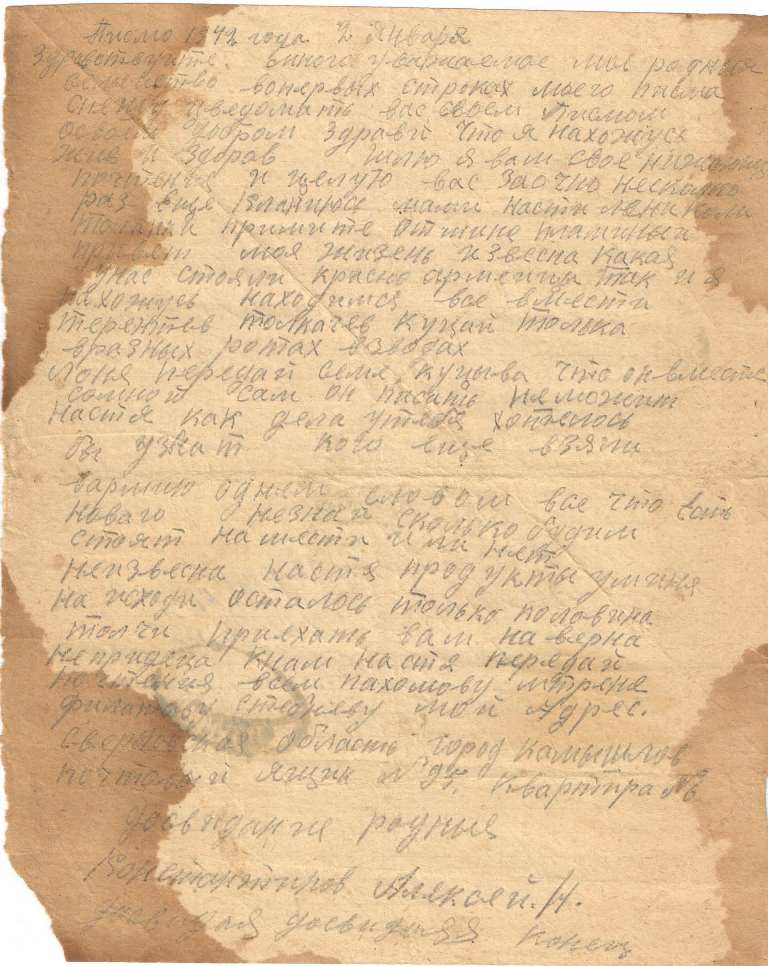 Писмо 1942 года 2 Января
Здравствуите много уважаемое мое родныя
вопервых строках моего писма
спешу уведомить вас своем Писмом
освоем добром здравй что я нахожусь
жив и здоров шлю я вам свое
почтения и целую вас заочно несколко
раз еще Кланиюсь мами насти лени коли
примите от мине пламиныи
привет моя жизень извесна Какая
унас стояли красно армеицы так и я
нахожусь находимся все вмести
терентев толкачев куций толька
вразных ротах взводах
Лоня передай семе куцыва что он вместе
сомной сам он писать неможит
Настя как дела утебя хотелось
бы узнат кого еще взяли
вармию одним словом все что есть
новаго незнай сколько будим
стоят на мести или нет
неизвесна настя продукты уминя
на исходи осталось только половина
приехать вам наверна
непридеца кнам настя передай
почтения всем пахомову
филатову мой Адрес.
свердловская область город камышлов
почтовый ящик № 25. квартира №
досвидание родныя
Константинов Аляксей. Н.
досвидания Конец